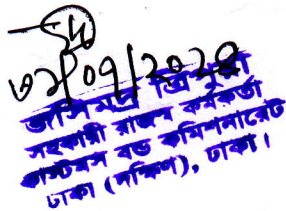 ৩১/০৭/২০২৪
জাসিমদ্র ত্রিপুরা
সহকারী রাজস্ব কর্মকর্তা
কাস্টমস বন্ড কমিশনারেট
ঢাকা (দক্ষিণ), ঢাকা।